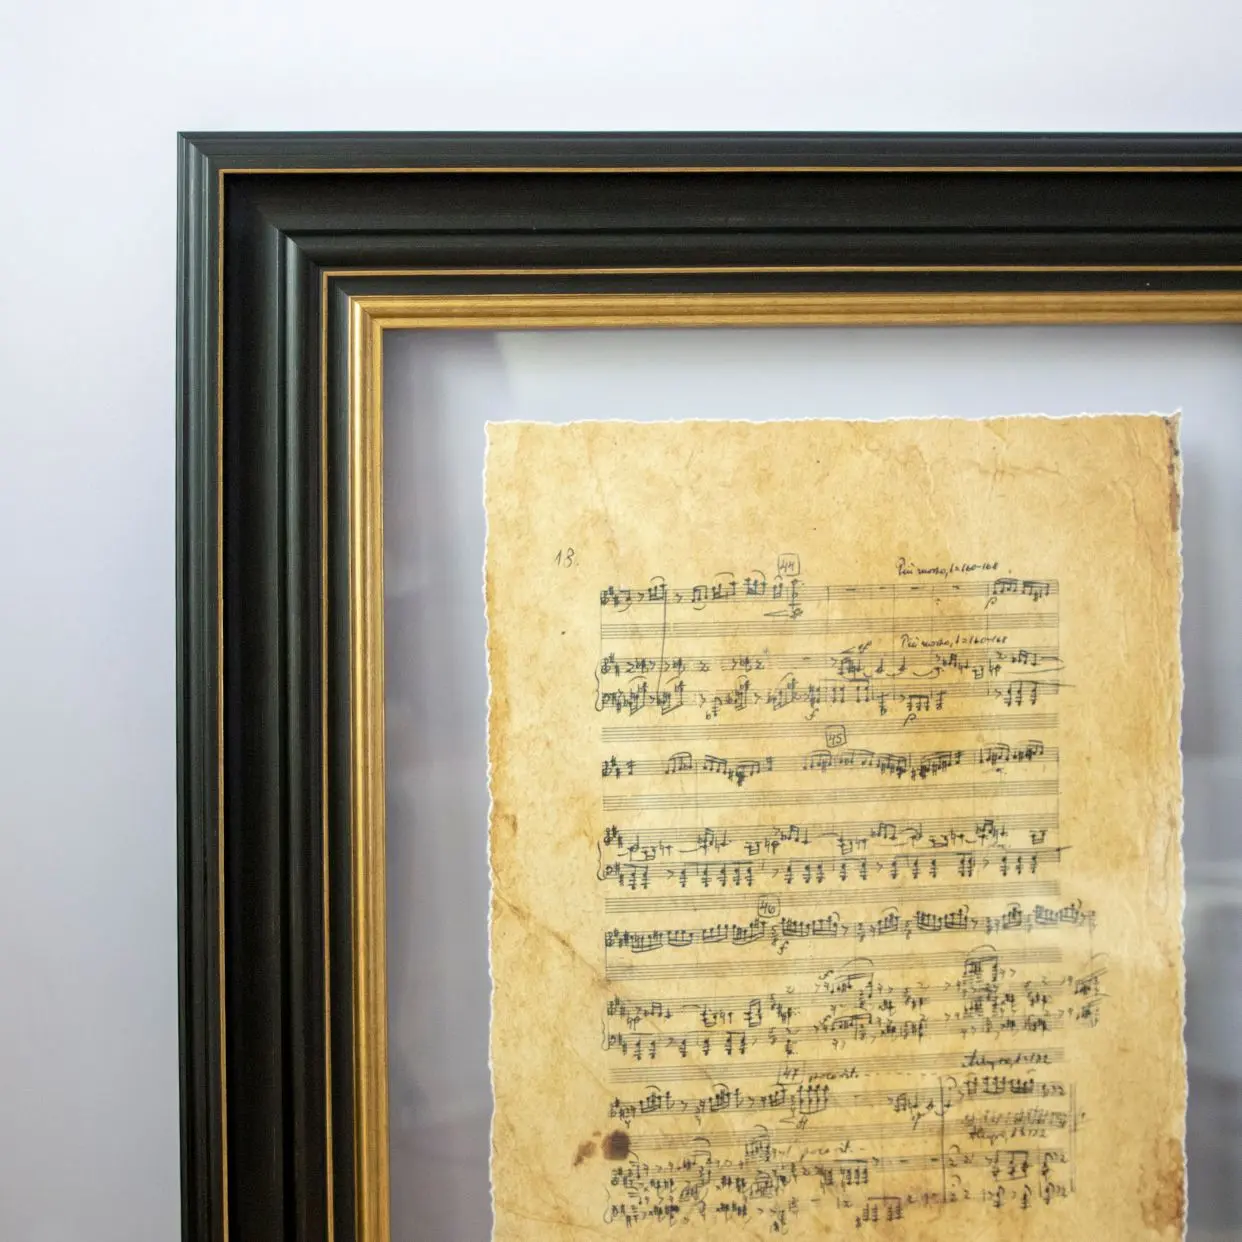 13.
44
Più mosso, ♩=160-168
p
Più mosso, ♩=160-168
sf
f
p
45
46
f
47 poco rit.
Allegro, ♩=132
Allegro, ♩=132
poco rit.